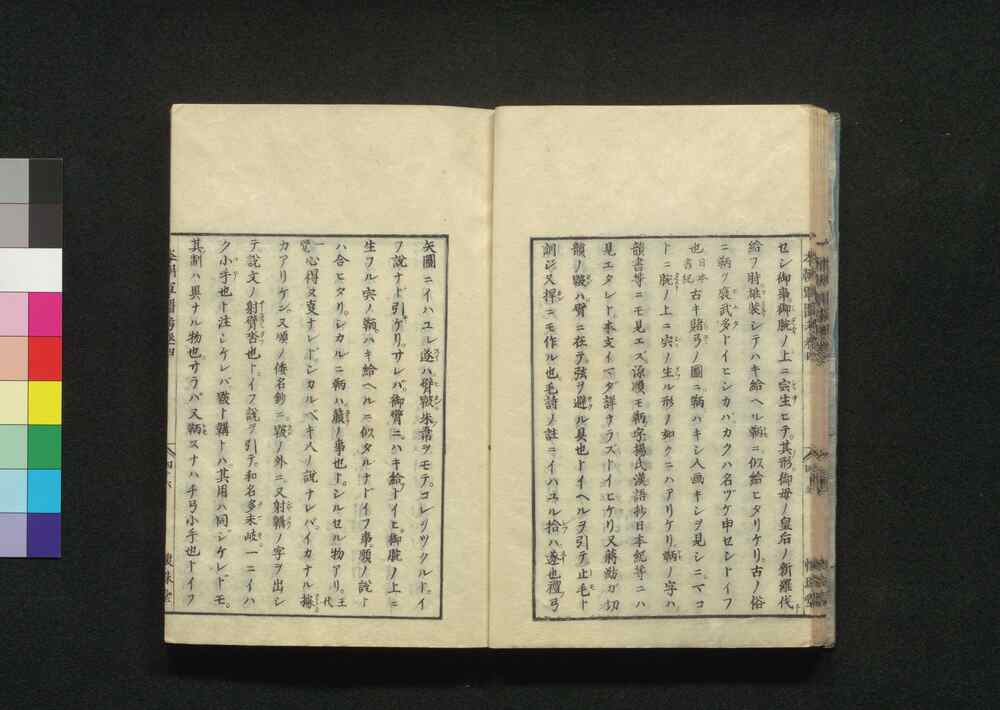 セシ御事御腕ノ上ニ宍生ヒテ其形御母ノ皇后ノ新羅伐
給フ時雄装シテハキ給ヘル鞆ニ似給ヒタリケリ古ノ俗
ニ鞆ヲ褒武多トイヒシカバカクハ名ヅケ申セシトイフ
也日本書紀古キ賭弓ノ圖ニ鞆ハキシ人画キシヲ見シニマコ
トニ腕ノ上ニ宍ノ生ル形ノ如クニハアリケリ鞆ノ字ハ
韻書等ニモ見エズ源順モ鞆字楊氏漢語抄日本紀等ニハ
見エタレド本文イマダ詳ナラストイヒケリ又蔣魴ガ切
韻ノ䩞ハ臂ニ在テ弦ヲ避ル具也トイヘルヲ引テ止毛ト
訓ジ又捍ニモ作ル也毛詩ノ註ニイハユル拾ハ遂也禮弓
矢圖ニイハユル遂ハ臂䩞朱韋ヲモテコレヲツクルトイ
フ説ナド引ケリサレバ御臂ニハキ給トイヒ御腕ノ上ニ
生フル宍ノ鞆ハキ給ヘルニ似タルナドイフ事順ノ説ト
ハ合ヒタリシカルニ鞆ハ籙ノ事也トシルセル物アリ王代
一覧心得ヌ事ナレドシカルベキ人ノ説ナレバイカナル據
カアリケン又順ノ倭名鈔ニ䩞ノ外ニ又射韝ノ字ヲ出シ
テ説文ノ射臂沓也トイフ説ヲ引テ和名多末岐一ニイハ
ク小手也ト注シケレバ䩞ト韝トハ其用ハ同ジケレドモ
其制ハ異ナル物也サラバ又鞆スナハチ弓小手也トイフ
本朝軍器考巻四
四ノ六